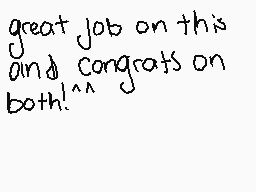 great job on this
and congrats on
both!^^